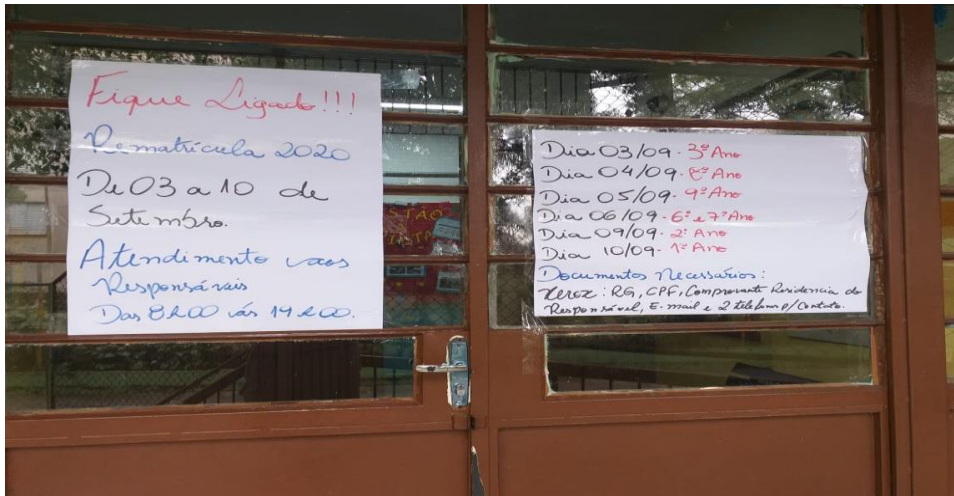 Fique Ligado!!!
Rematrícula 2020
De 03 a 10 de
Setembro.
Atendimento aos
Responsáveis
Das 8h00 ás 14h00.
Dia 03/09 - 3º Ano
Dia 04/09 - 8º Ano
Dia 05/09 - 9º Ano
Dia 06/09 - 6º e 7º Ano
Dia 09/09 - 2º Ano
Dia 10/09 - 1º Ano
Documentos Necessarios:
Xerox: RG, CPF, Comprovante Residencia do
Responsável, E-mail e 2 telefones p/ Contato.
STÃO